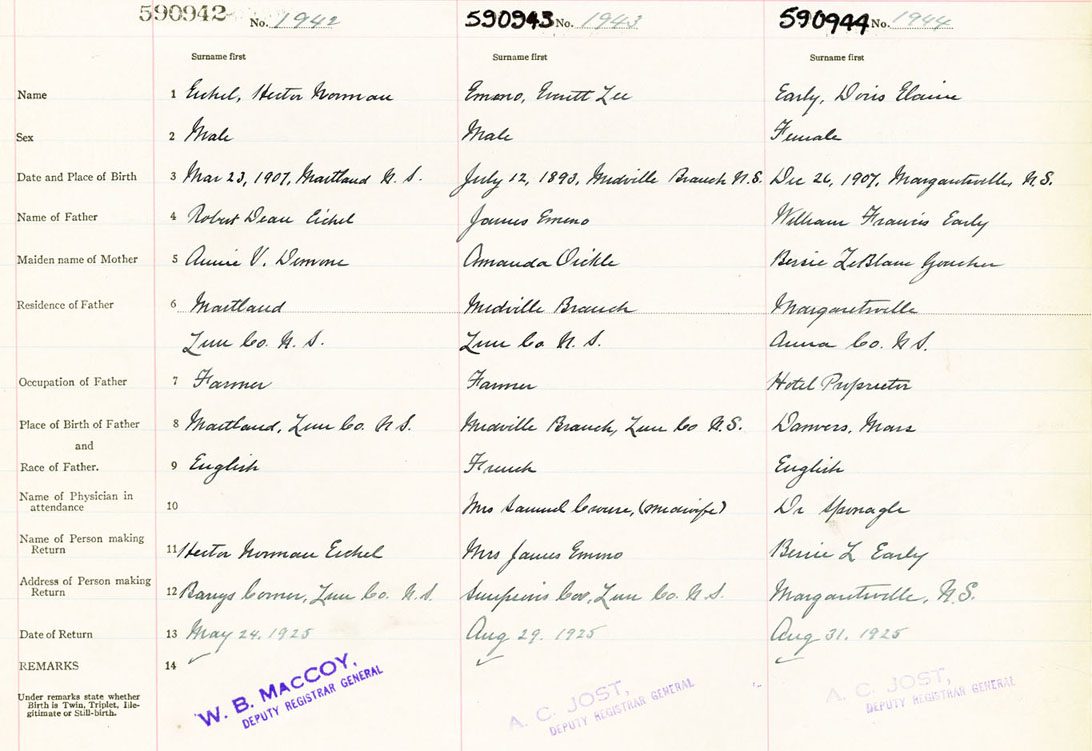 590942 No. 1942 590943 No. 1943 590944 No. 1944
Surname first Surname first Surname first
Name 1 Eichel, Hector Norman Emeno, Everett Lee Early, Doris Elaine
Sex 2 Male Male Female
Date and Place of Birth 3 Mar 23, 1907, Maitland N.S. July 12, 1893, Midville Branch N.S. Dec 26, 1907, Margaretsville, N.S.
Name of Father 4 Robert Dean Eichel James Emeno William Francis Early
Maiden name of Mother 5 Annie V. Demone Amanda Oickle Bessie LeBlanc Goucher
Residence of Father 6 Maitland Midville Branch Margaretsville
Lun Co. N.S. Lun Co N.S. Anna Co. N.S.
Occupation of Father 7 Farmer Farmer Hotel Proprietor
Place of Birth of Father 8 Maitland, Lun Co. N.S. Midville Branch, Lun Co N.S. Danvers, Mass
and
Race of Father. 9 English French English
Name of Physician in
attendance 10 Mrs Samuel Crouse, (midwife) Dr Sponagle
Name of Person making
Return 11 Hector Norman Eichel Mrs James Emeno Bessie L Early
Address of Person making
Return 12 Barys Corner, Lun Co. N.S. Simpsons Cor, Lun Co. N.S. Margaretsville, N.S.
Date of Return 13 May 24. 1925 Aug 29. 1925 Aug 31. 1925
REMARKS 14
Under remarks state whether
Birth is Twin, Triplet, Ille-
gitimate or Still-birth.
W. B. MACCOY,
DEPUTY REGISTRAR GENERAL
A. C. JOST,
DEPUTY REGISTRAR GENERAL
A. C. JOST,
DEPUTY REGISTRAR GENERAL